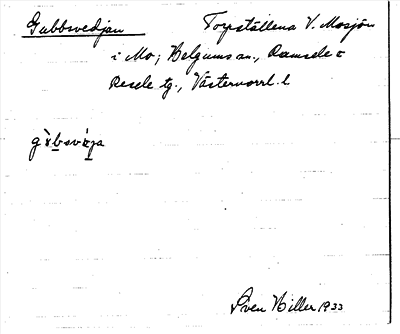 Gubbsvedjan Torpställena V. Mosjön
i Mo; Helgums sn., Ramsele o
Resele tg., Västernorrl. l
Sven Hiller 1933